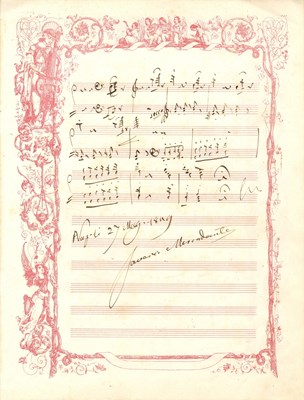 Napoli 27 1849
Saverio Mercadante